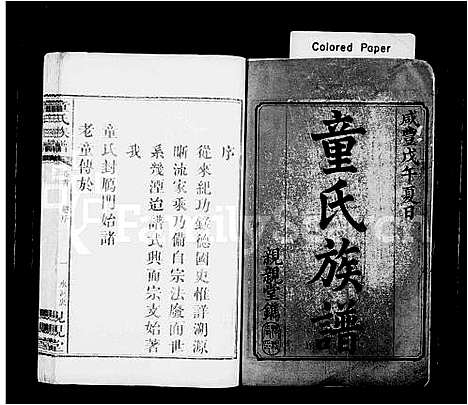 Colored Paper
咸豐戊午夏日
童氏族譜
親親堂鐫
序
從來紀功叙德國史惟詳溯源
晰流家乘乃備自宗法廢而世
系幾湮迨譜式興而宗支始著
我
童氏封鴈門始諸
老童傳於
親親堂